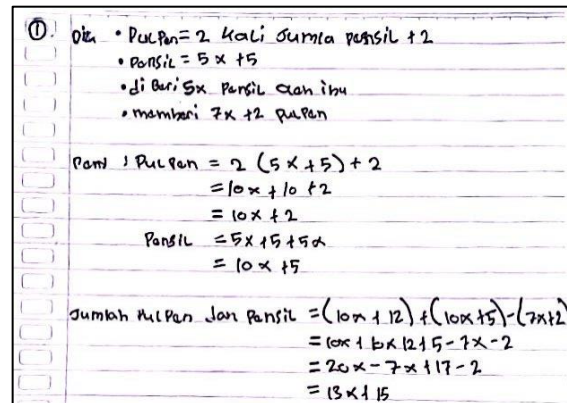 ①. Dik • Pulpen = 2 kali Jumla pensil + 2
• Pensil = 5x + 5
• di Beri 5x Pensil oleh ibu
• memberi 7x + 2 pulpen
: Pulpen = 2 (5x + 5) + 2
= 10x + 10 + 2
= 10x + 2
Pensil = 5x + 5 + 5x
= 10x + 5
Jumlah Pulpen dan Pensil = (10x + 12) + (10x + 5) - (7x + 2)
= 10x + 10x 12 + 5 - 7x - 2
= 20x - 7x + 17 - 2
= 13x + 15